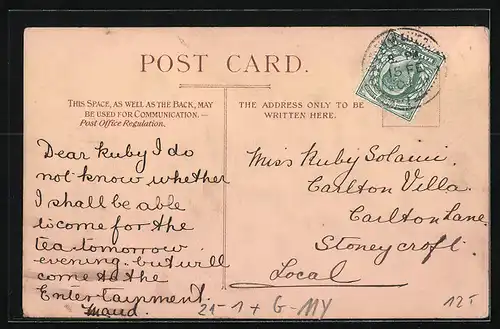 POST CARD.
THIS SPACE, AS WELL AS THE BACK, MAY
BE USED FOR COMMUNICATION. —
Post Office Regulation.
Dear Ruby I do
not know whether
I shall be able
to come for the
tea tomorrow
evening. but will
come to the
Entertainment.
Maud.
THE ADDRESS ONLY TO BE
WRITTEN HERE.
Miss Ruby
Carlton Villa.
Carlton Lane.
Stoneycroft.
Local
21-1+ G-MY